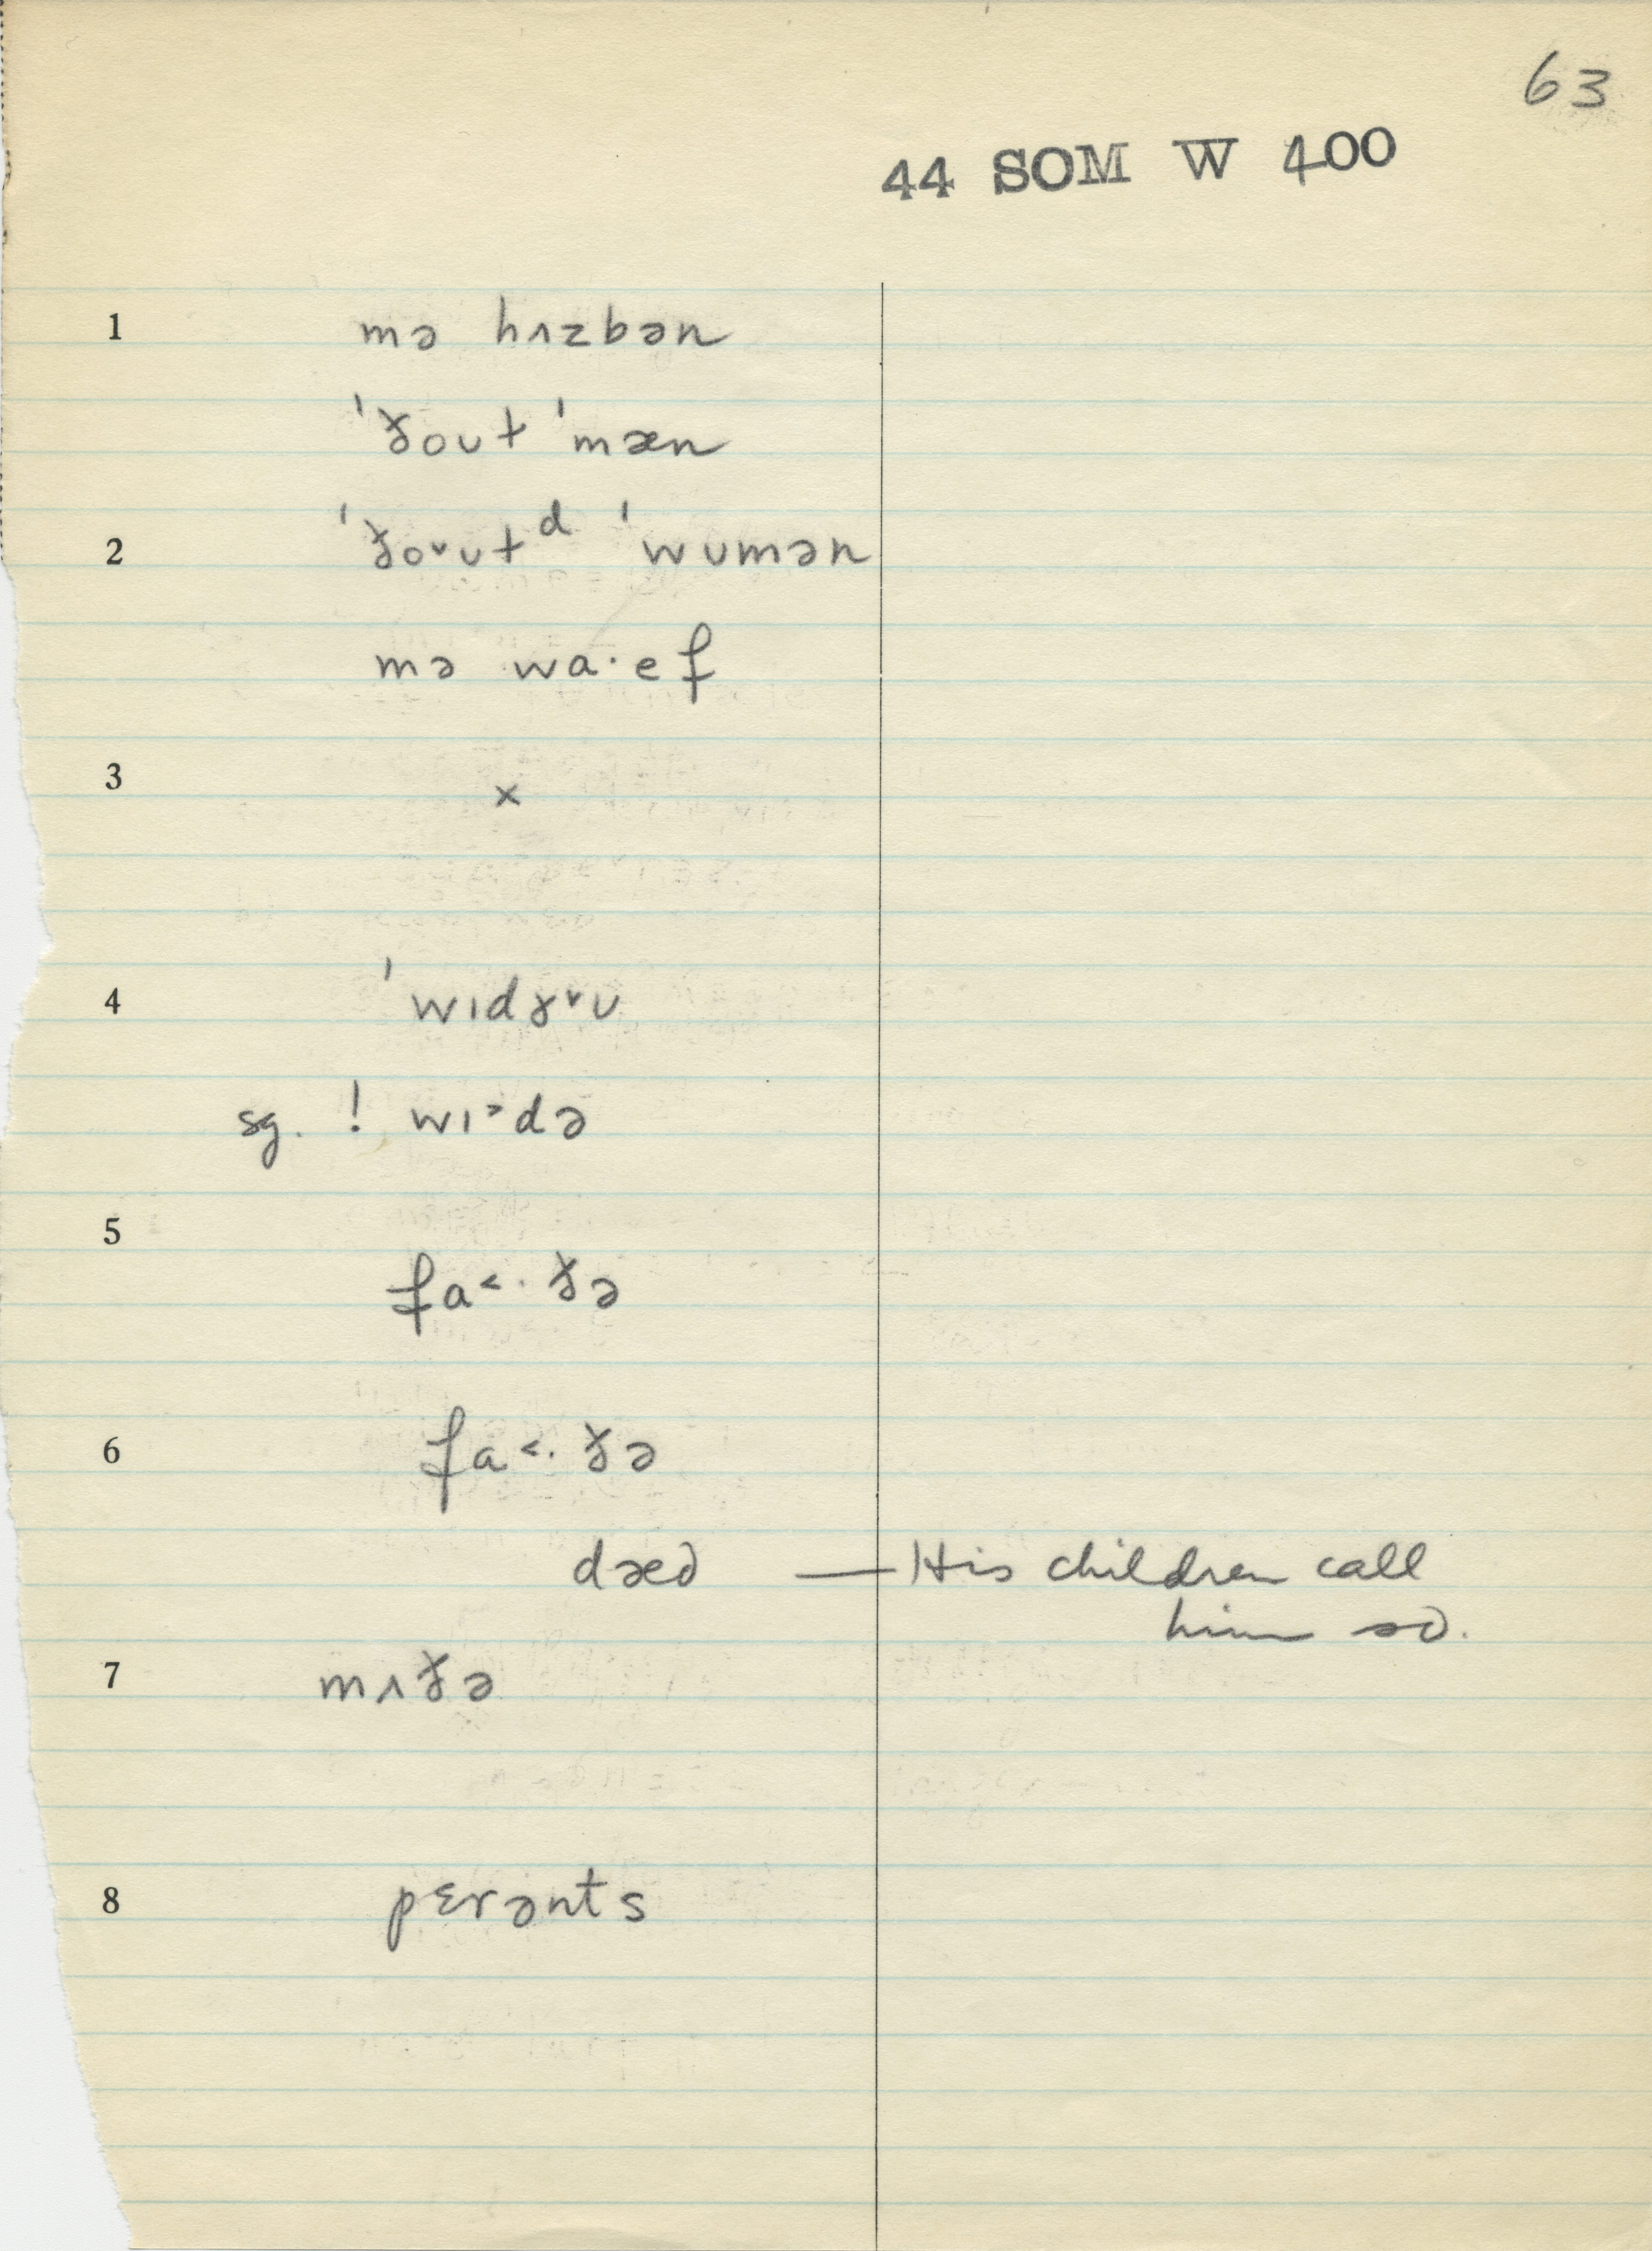 63
44 SOM W 400
1 mə hʌzbən
ˈðoʊt ˈmæn
2 ˈðo˅ʊtᵈ ˈwʊmən
mə wa·ef
3 ×
4 ˈwɪdɤ˅ʊ
sg. ! wɪ˃də
5
fa˂·ðə
6 fa˂·ðə
dæd — His children call
him so.
7 mʌðə
8 pɛrənts